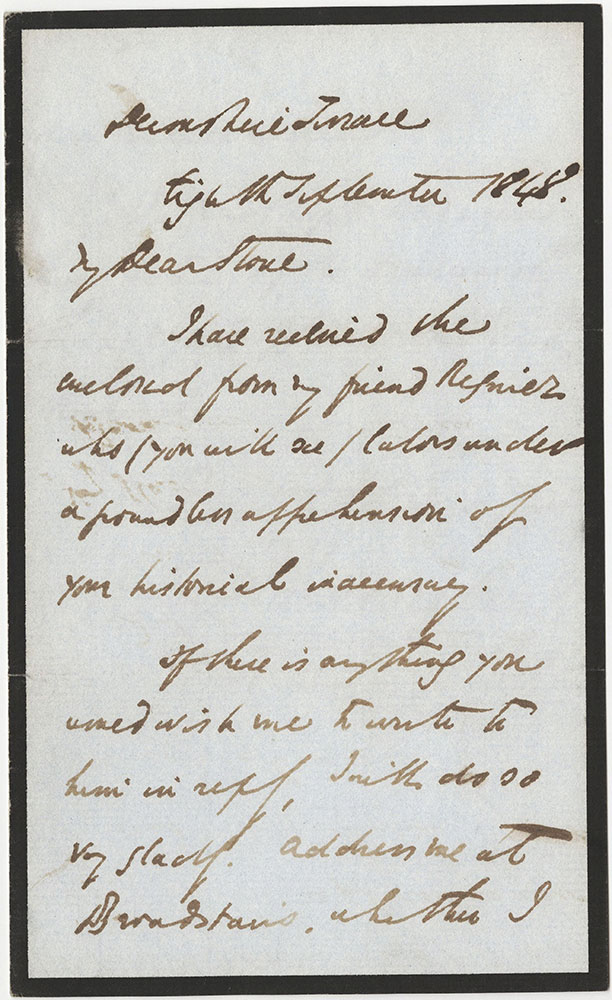 Devonshire Terrace
Eighth September 1848.
My Dear Stone.
I have received the
enclosed from my friend Regnier
who / you will see / labors under
a groundless apprehension of
your historical inaccuracy.
If there is anything you
would wish me to write to
him in reply, I will do so
very gladly. Address me at
Broadstairs, whither I